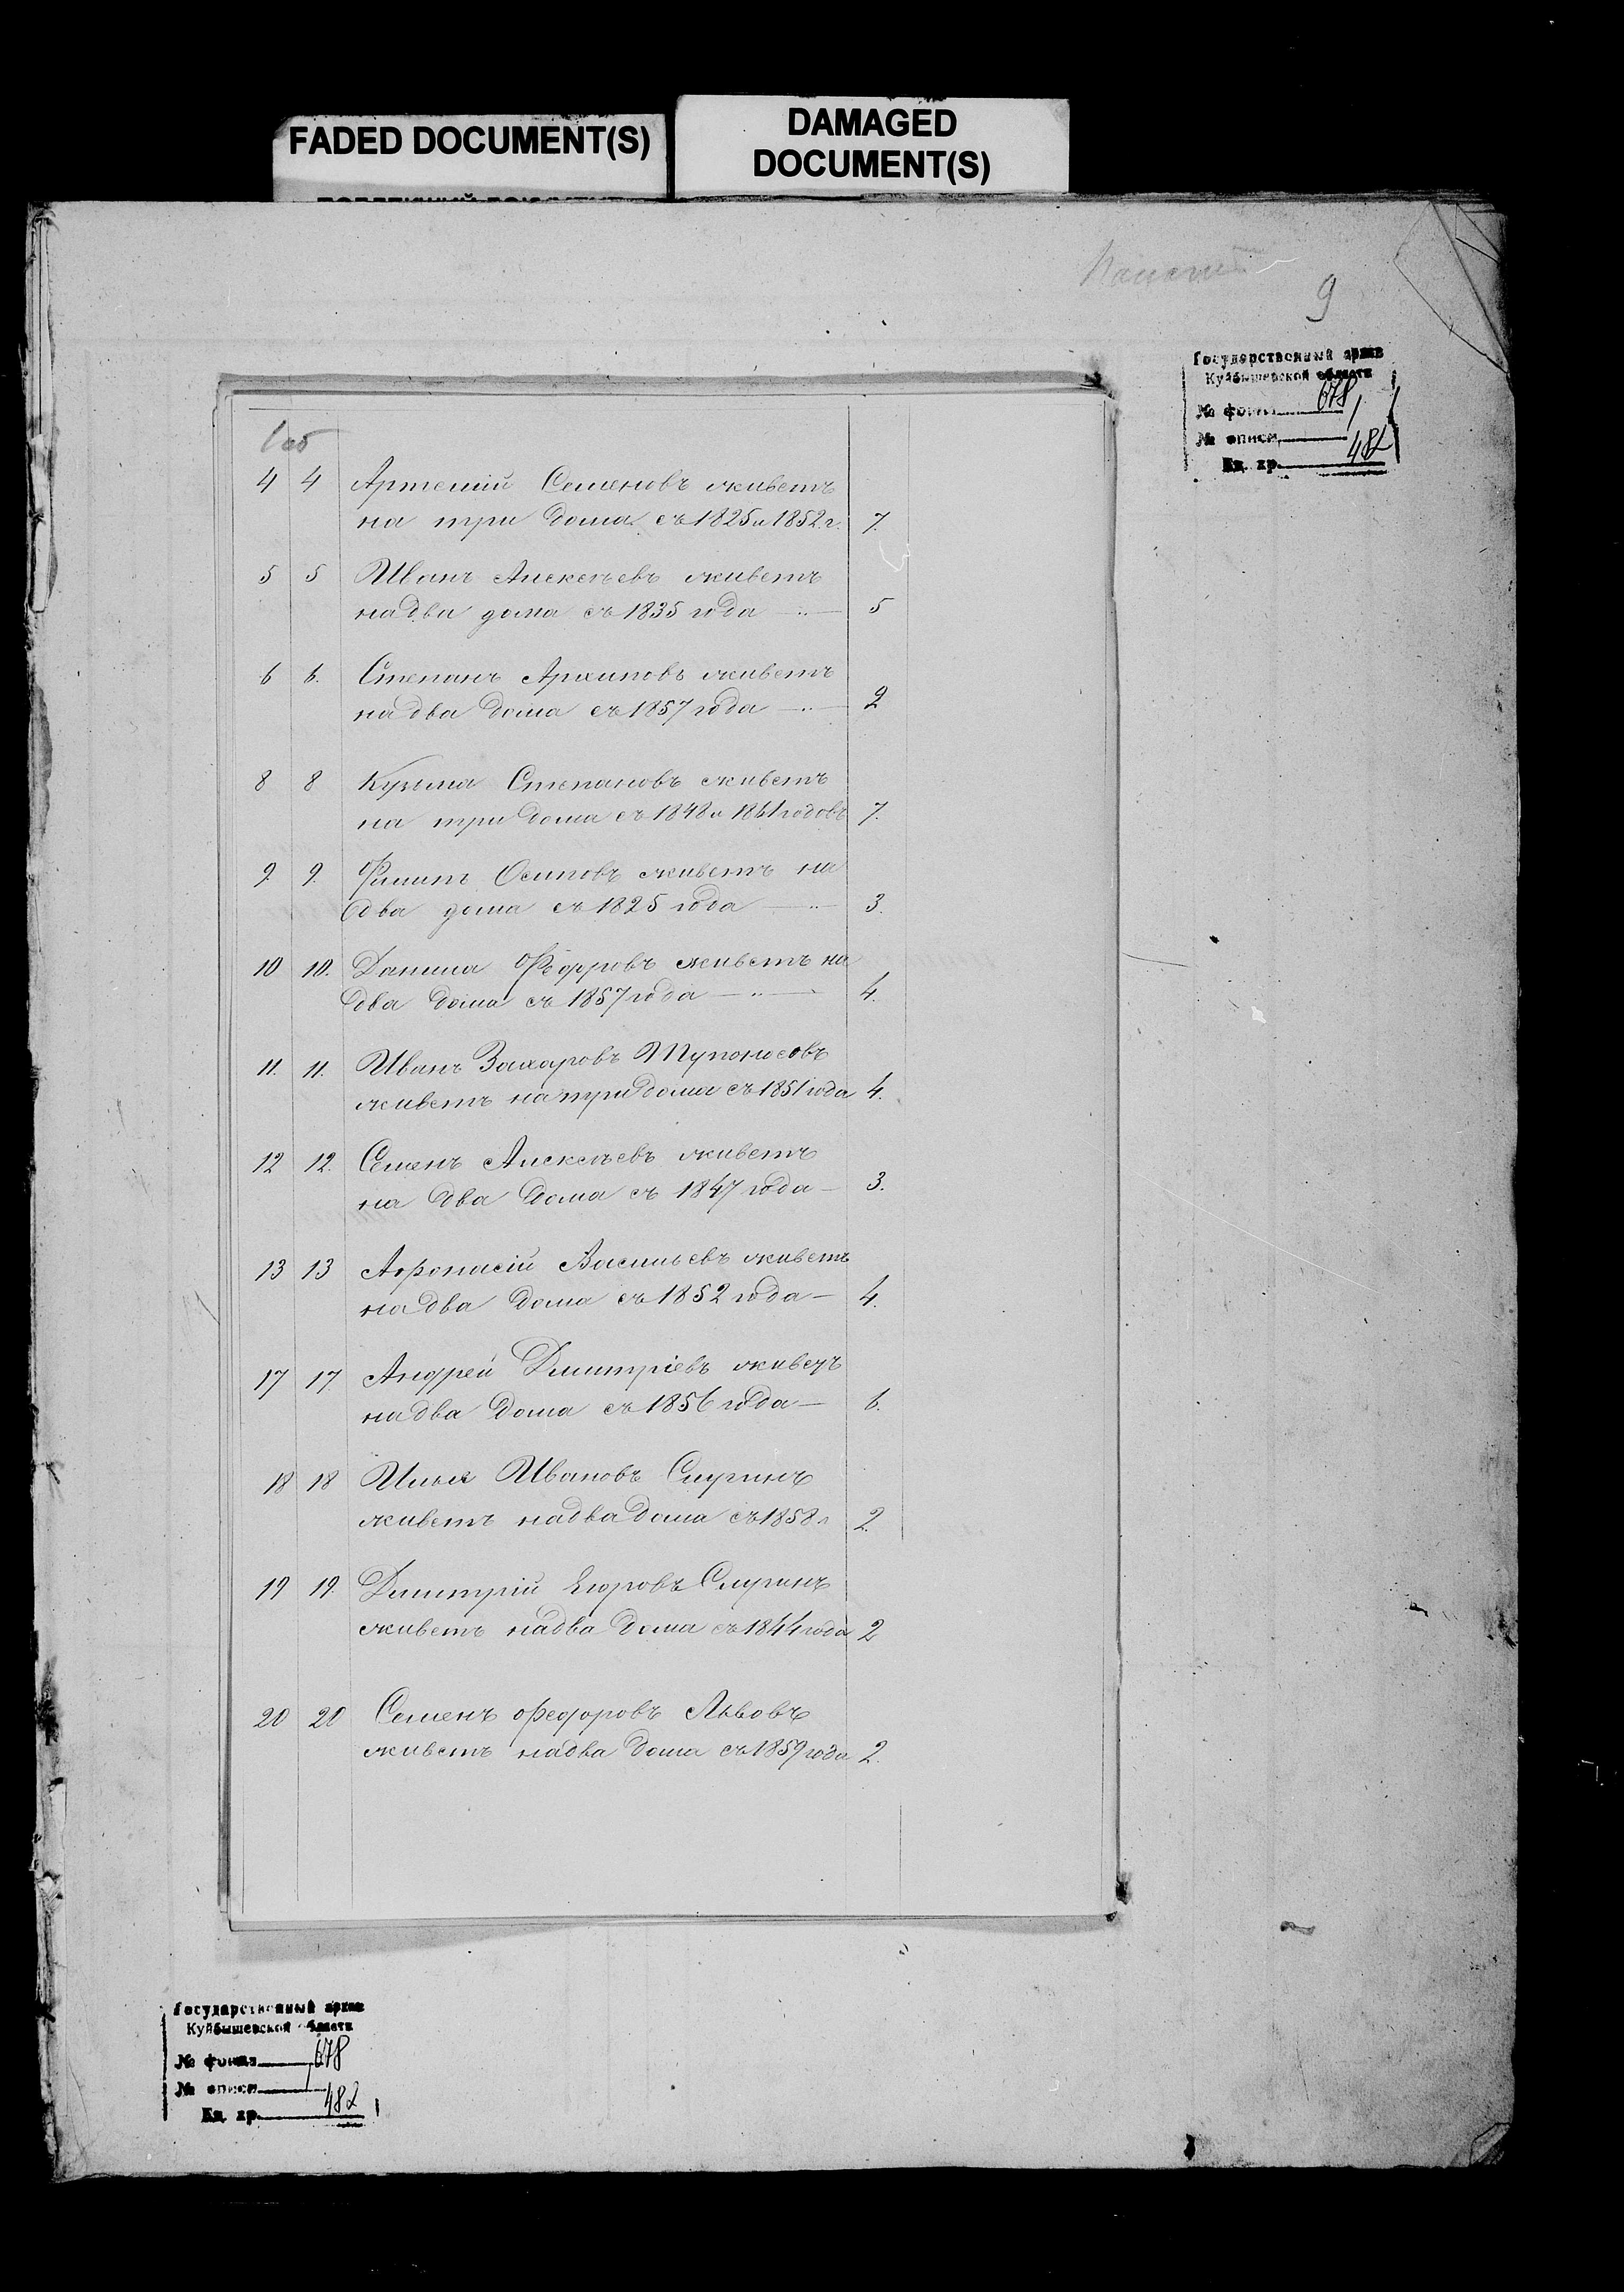 FADED DOCUMENT(S)
DAMAGED
DOCUMENT(S)
9
Государственный архив
Куйбышевской области
№ фонда 678
№ описи 1
Ед. хр. 482
1об
4 4 Артемий Семеновъ живетъ
на три дома съ 1825 и 1852 г. 7.
5 5 Иванъ Алексѣевъ живетъ
на два дома съ 1835 года —"— 5
6 6. Степанъ Архиповъ живетъ
на два дома съ 1857 года —"— 2
8 8 Кузьма Степановъ живетъ
на три дома съ 1848 и 1861 годовъ 7.
9. 9. Филипъ Осиповъ живетъ на
два дома съ 1825 года —"— 3.
10 10. Данила Ѳедоровъ живетъ на
два дома съ 1857 года —"— 4.
11. 11. Иванъ Захаровъ Тупоносовъ
живетъ на три дома съ 1851 года 4.
12 12. Семенъ Алексѣевъ живетъ
на два дома съ 1847 года — 3.
13 13 Афонасій Васильевъ живетъ
на два дома съ 1852 года — 4.
17 17 Андрей Дмитріевъ живетъ
на два дома съ 1856 года — 6.
18 18 Илья Ивановъ Смуринъ
живетъ на два дома съ 1858 г 2.
19 19. Дмитрій Егоровъ Смуринъ
живетъ на два дома съ 1844 года 2
20 20 Семенъ Федоровъ Львовъ
живетъ на два дома съ 1859 года 2.
Государственный архив
Куйбышевской области
№ фонда 678
№ описи 1
Ед. хр. 482